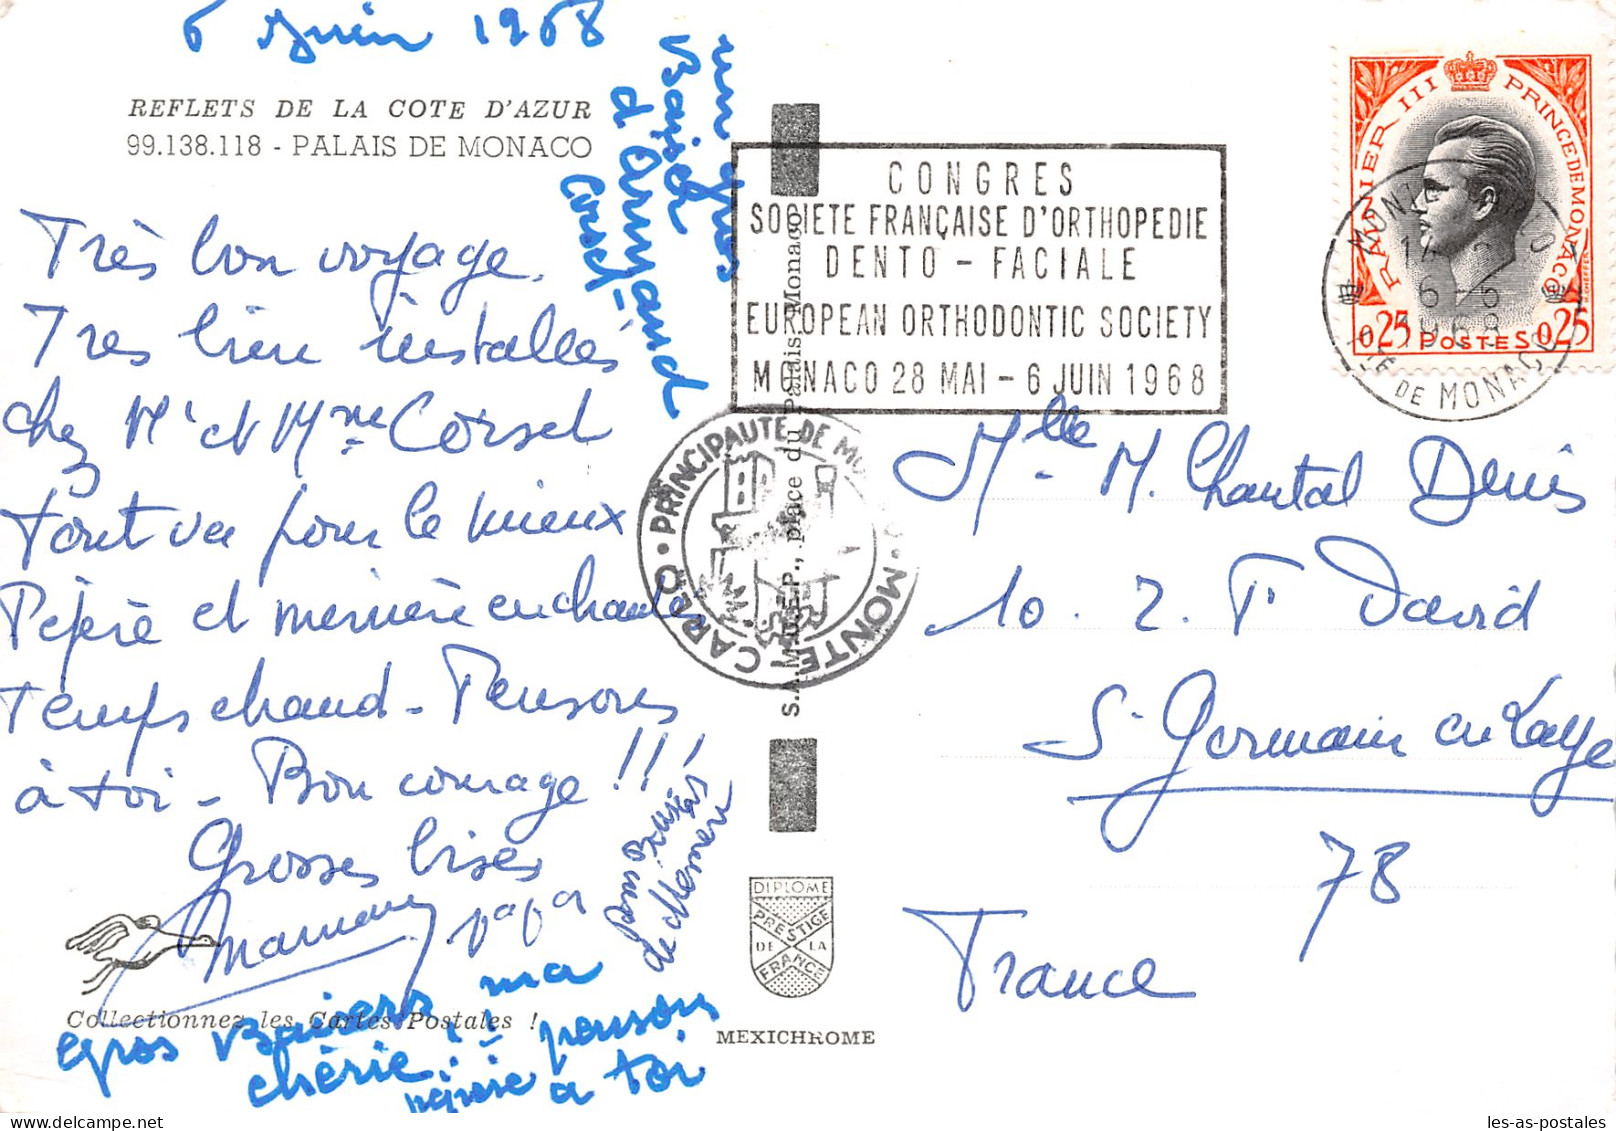 6 Juin 1968
REFLETS DE LA COTE D'AZUR
99.138.118 - PALAIS DE MONACO
Très bon voyage.
Tres bien installés
chez Mr et Mme Corsel
tout va pour le mieux
Pépère et mémère enchantés
Temps chaud - Pensons
à toi - Bon courage !!!
Grosses bises
Maman Papa
Gros Baisers ma
chérie
pensons
a toi
un gros
Baiser
d'Armand
Corsel
Bons Baisers
de Mémère
Collectionnez les Cartes Postales !
S.A.M.D.E.P., place du Palais Monaco
DIPLOME
PRESTIGE
DE LA
FRANCE
MEXICHROME
CONGRES
SOCIETE FRANÇAISE D'ORTHOPEDIE
DENTO - FACIALE
EUROPEAN ORTHODONTIC SOCIETY
MONACO 28 MAI - 6 JUIN 1968
PRINCIPAUTE DE MONACO • MONTE-CARLO •
RAINIER III PRINCE DE MONACO
0,25 POSTES 0,25
6-6
1968
PTE DE MONACO
Mlle M. Chantal Denis
10. 2. Pr David
St Germain en Laye
78
France
les-as-postales.